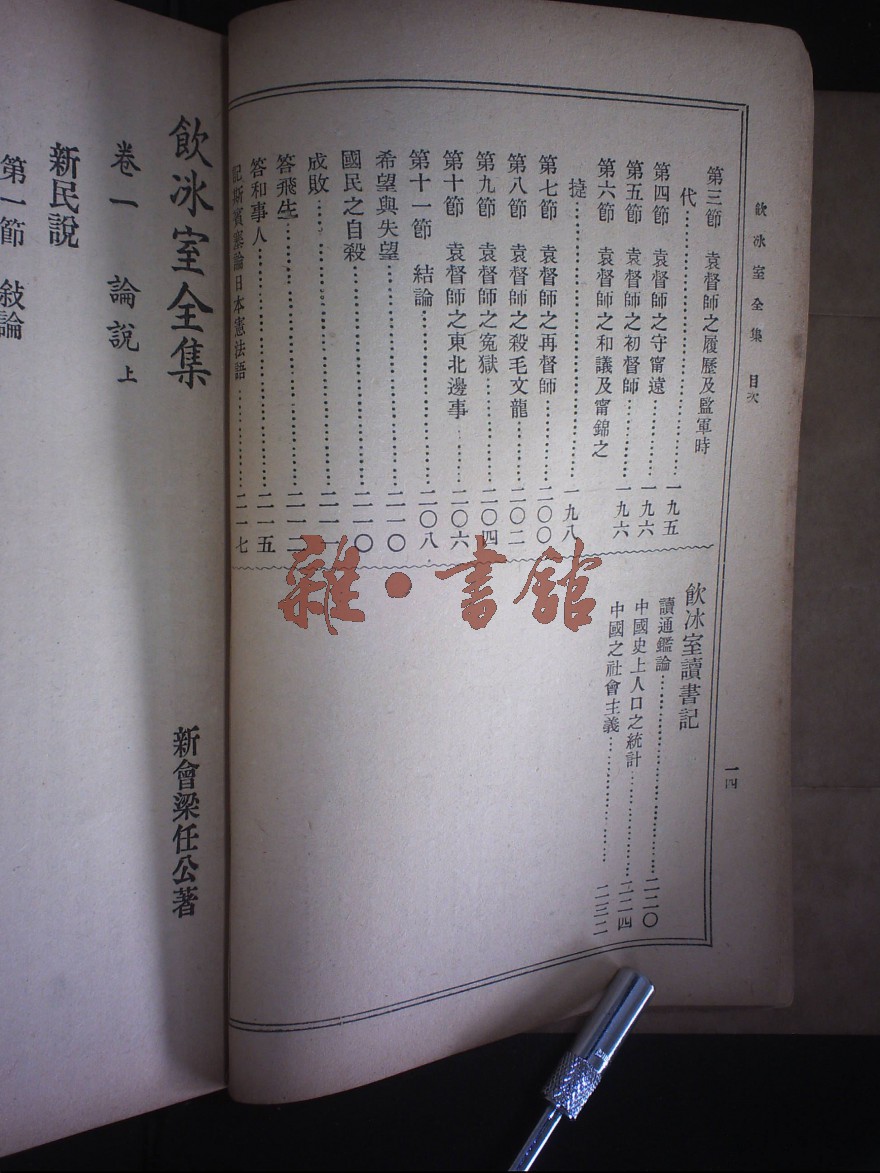 飲冰室全集　目次
一四
第三節　袁督師之履歷及監軍時
代……一九五
第四節　袁督師之守甯遠……一九六
第五節　袁督師之初督師……一九六
第六節　袁督師之和議及甯錦之
㨗……一九八
第七節　袁督師之再督師……二〇〇
第八節　袁督師之殺毛文龍……二〇二
第九節　袁督師之冤獄……二〇四
第十節　袁督師之東北邊事……二〇六
第十一節　結論……二〇八
希望與失望……二一〇
國民之自殺……二一〇
成敗……二一一
答飛生……二一二
答和事人……二一五
記斯賓塞論日本憲法語……二一七
飲冰室讀書記
讀通鑑論……二二〇
中國史上人口之統計……二二四
中國之社會主義……二三二
雜·書館
飲冰室全集
新會梁任公著
卷一　論說上
新民說
第一節　敍論